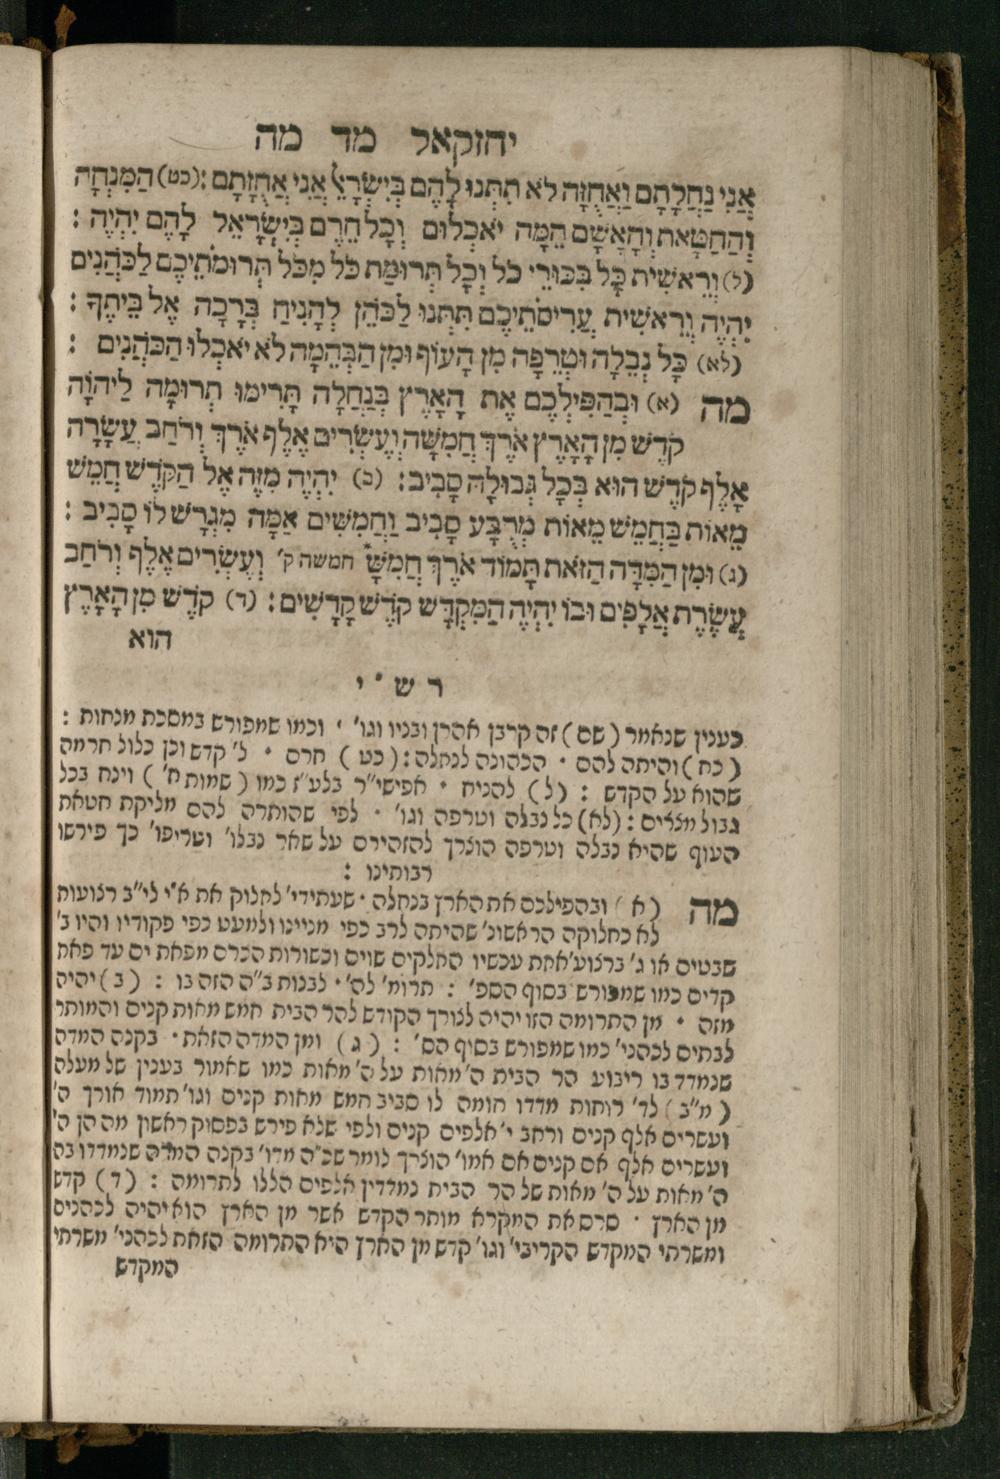 יחזקאל מד מה
אֲנִי נַחֲלָתָם וַאֲחֻזָּה לֹא תִתְּנוּ לָהֶם בְּיִשְׂרָאֵל אֲנִי אֲחֻזָּתָם: (כט) הַמִּנְחָה
וְהַחַטָּאת וְהָאָשָׁם הֵמָּה יֹאכְלוּם וְכָל חֵרֶם בְּיִשְׂרָאֵל לָהֶם יִהְיֶה :
(ל) וְרֵאשִׁית כָּל בִּכּוּרֵי כֹל וְכָל תְּרוּמַת כֹּל מִכֹּל תְּרוּמֹתֵיכֶם לַכֹּהֲנִים
יִהְיֶה וְרֵאשִׁית עֲרִיסֹתֵיכֶם תִּתְּנוּ לַכֹּהֵן לְהָנִיחַ בְּרָכָה אֶל בֵּיתֶךָ :
(לא) כָּל נְבֵלָה וּטְרֵפָה מִן הָעוֹף וּמִן הַבְּהֵמָה לֹא יֹאכְלוּ הַכֹּהֲנִים :
מה (א) וּבְהַפִּילְכֶם אֶת הָאָרֶץ בְּנַחֲלָה תָּרִימוּ תְרוּמָה לַיהוָֹה
קֹדֶשׁ מִן הָאָרֶץ אֹרֶךְ חֲמִשָּׁה וְעֶשְׂרִים אֶלֶף אֹרֶךְ וְרֹחַב עֲשָׂרָה
אָלֶף קֹדֶשׁ הוּא בְּכָל גְּבוּלָהּ סָבִיב: (ב) יִהְיֶה מִזֶּה אֶל הַקֹּדֶשׁ חֲמֵשׁ
מֵאוֹת בַּחֲמֵשׁ מֵאוֹת מְרֻבָּע סָבִיב וַחֲמִשִּׁים אַמָּה מִגְרָשׁ לוֹ סָבִיב :
(ג) וּמִן הַמִּדָּה הַזֹּאת תָּמוֹד אֹרֶךְ חֲמִשָּׁ* חמשה ק' וְעֶשְׂרִים אֶלֶף וְרֹחַב
עֲשֶׂרֶת אֲלָפִים וּבוֹ יִהְיֶה הַמִּקְדָּשׁ קֹדֶשׁ קָדָשִׁים: (ד) קֹדֶשׁ מִן הָאָרֶץ
הוא
ר ש " י
כענין שנאמר (שם) זה קרבן אהרן ובניו וגו' · וכמו שמפורש במסכת מנחות :
(כח) והיתה להם · הכהונה לנחלה: (כט) חרם · ל' קדש וכן כלול חרמה
שהוא על הקדש : (ל) להניח · אפישי"ר בלע"ז כמו (שמות ח') וינח בכל
גבול מצרים: (לא) כל נבלה וטרפה וגו' · לפי שהותרה להם מליקת חטאת
העוף שהיא נבלה וטרפה הוצרך להזהירם על שאר נבלו' וטריפו' כך פירשו
רבותינו :
מה (א) ובהפילכם את הארץ בנחלה · שעתידי' לחלוק את א"י לי"ב רצועות
לא כחלוקה הראשונ' שהיתה לרב כפי מניינו ולמעט כפי פקודיו והיו ב'
שבטים או ג' ברצוע' אחת עכשיו החלקים שוים וכשורות הכרם מפאת ים עד פאת
קדים כמו שמפורש בסוף הספ' : תרומ' לה' · לבנות ב"ה הזה בו : (ב) יהיה
מזה · מן התרומה הזו יהיה לצורך הקודש להר הבית חמש מאות קנים והמותר
לבתים לכהני' כמו שמפורש בסיף הס' : (ג) ומן המדה הזאת · בקנה המדה
שנמדד בו ריבוע הר הבית ה' מאות על ה' מאות כמו שאמור בענין של מעלה
(מ"ב) לד' רוחות מדדו חומה לו סביב חמש מאות קנים וגו' תמוד אורך ה'
ועשרים אלף קנים ורחב י' אלפים קנים ולפי שלא פירש בפסוק ראשון מה הן ה'
ועשרים אלף אם קנים אם אמו' הוצרך לומר שכ"ה מדו' בקנה המדה שנמדדו בה
ה' מאות על ה' מאות של הר הבית נמדדין אלפים הללו לתרומה : (ד) קדש
מן הארץ · סרס את המקרא מותר הקדש אשר מן הארץ הוא יהיה לכהנים
ומשרתי המקדש הקריבי' וגו' קדש מן הארץ היא התרומה הזאת לכהני' משרתי
המקדש